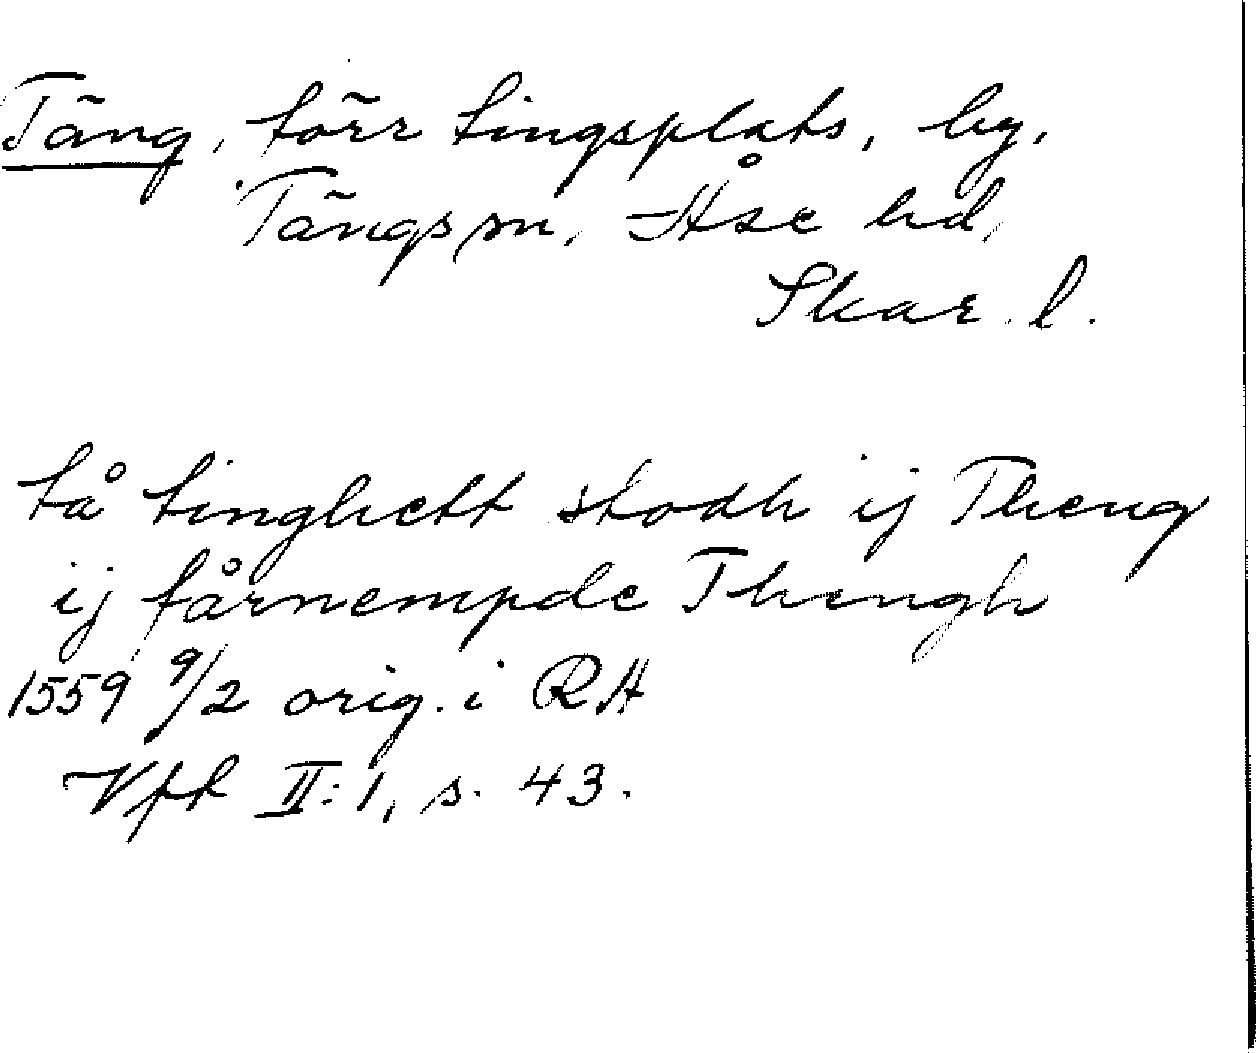 Täng, förr tingsplats, by,
Tängs sn, Åse hd,
Skar. l.
tå tinghett stodh ij Theng
ij fårnempde Thengh
1559 9/2 orig. i RA
Vfk II:1, s. 43.